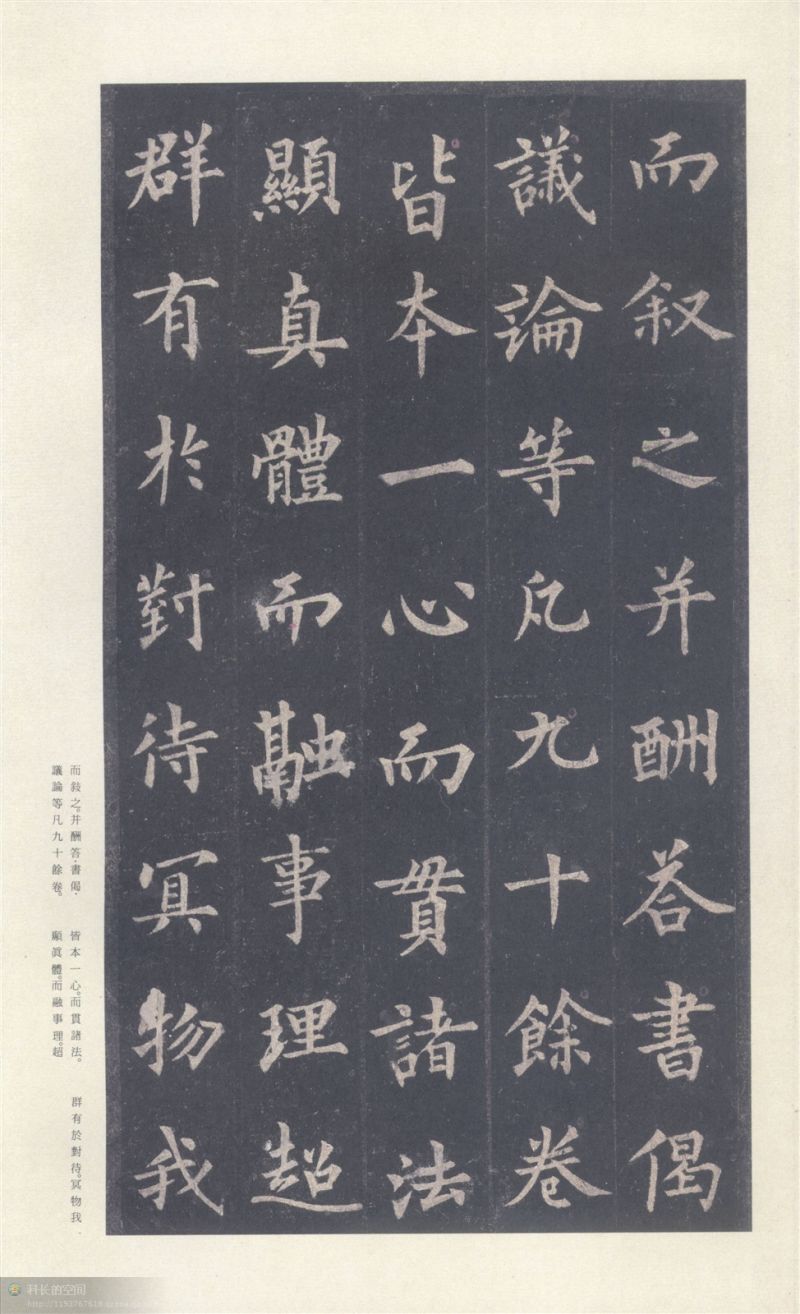 而叙之并酬荅書偈
議論等凡九十餘卷
皆本一心而貫諸法
顯真體而融事理超
群有於對待冥物我
而敍之。并酬答·書偈·
議論等凡九十餘卷。
皆本一心。而貫諸法。
顯眞體。而融事理。超
群有於對待。冥物我·
科长的空间